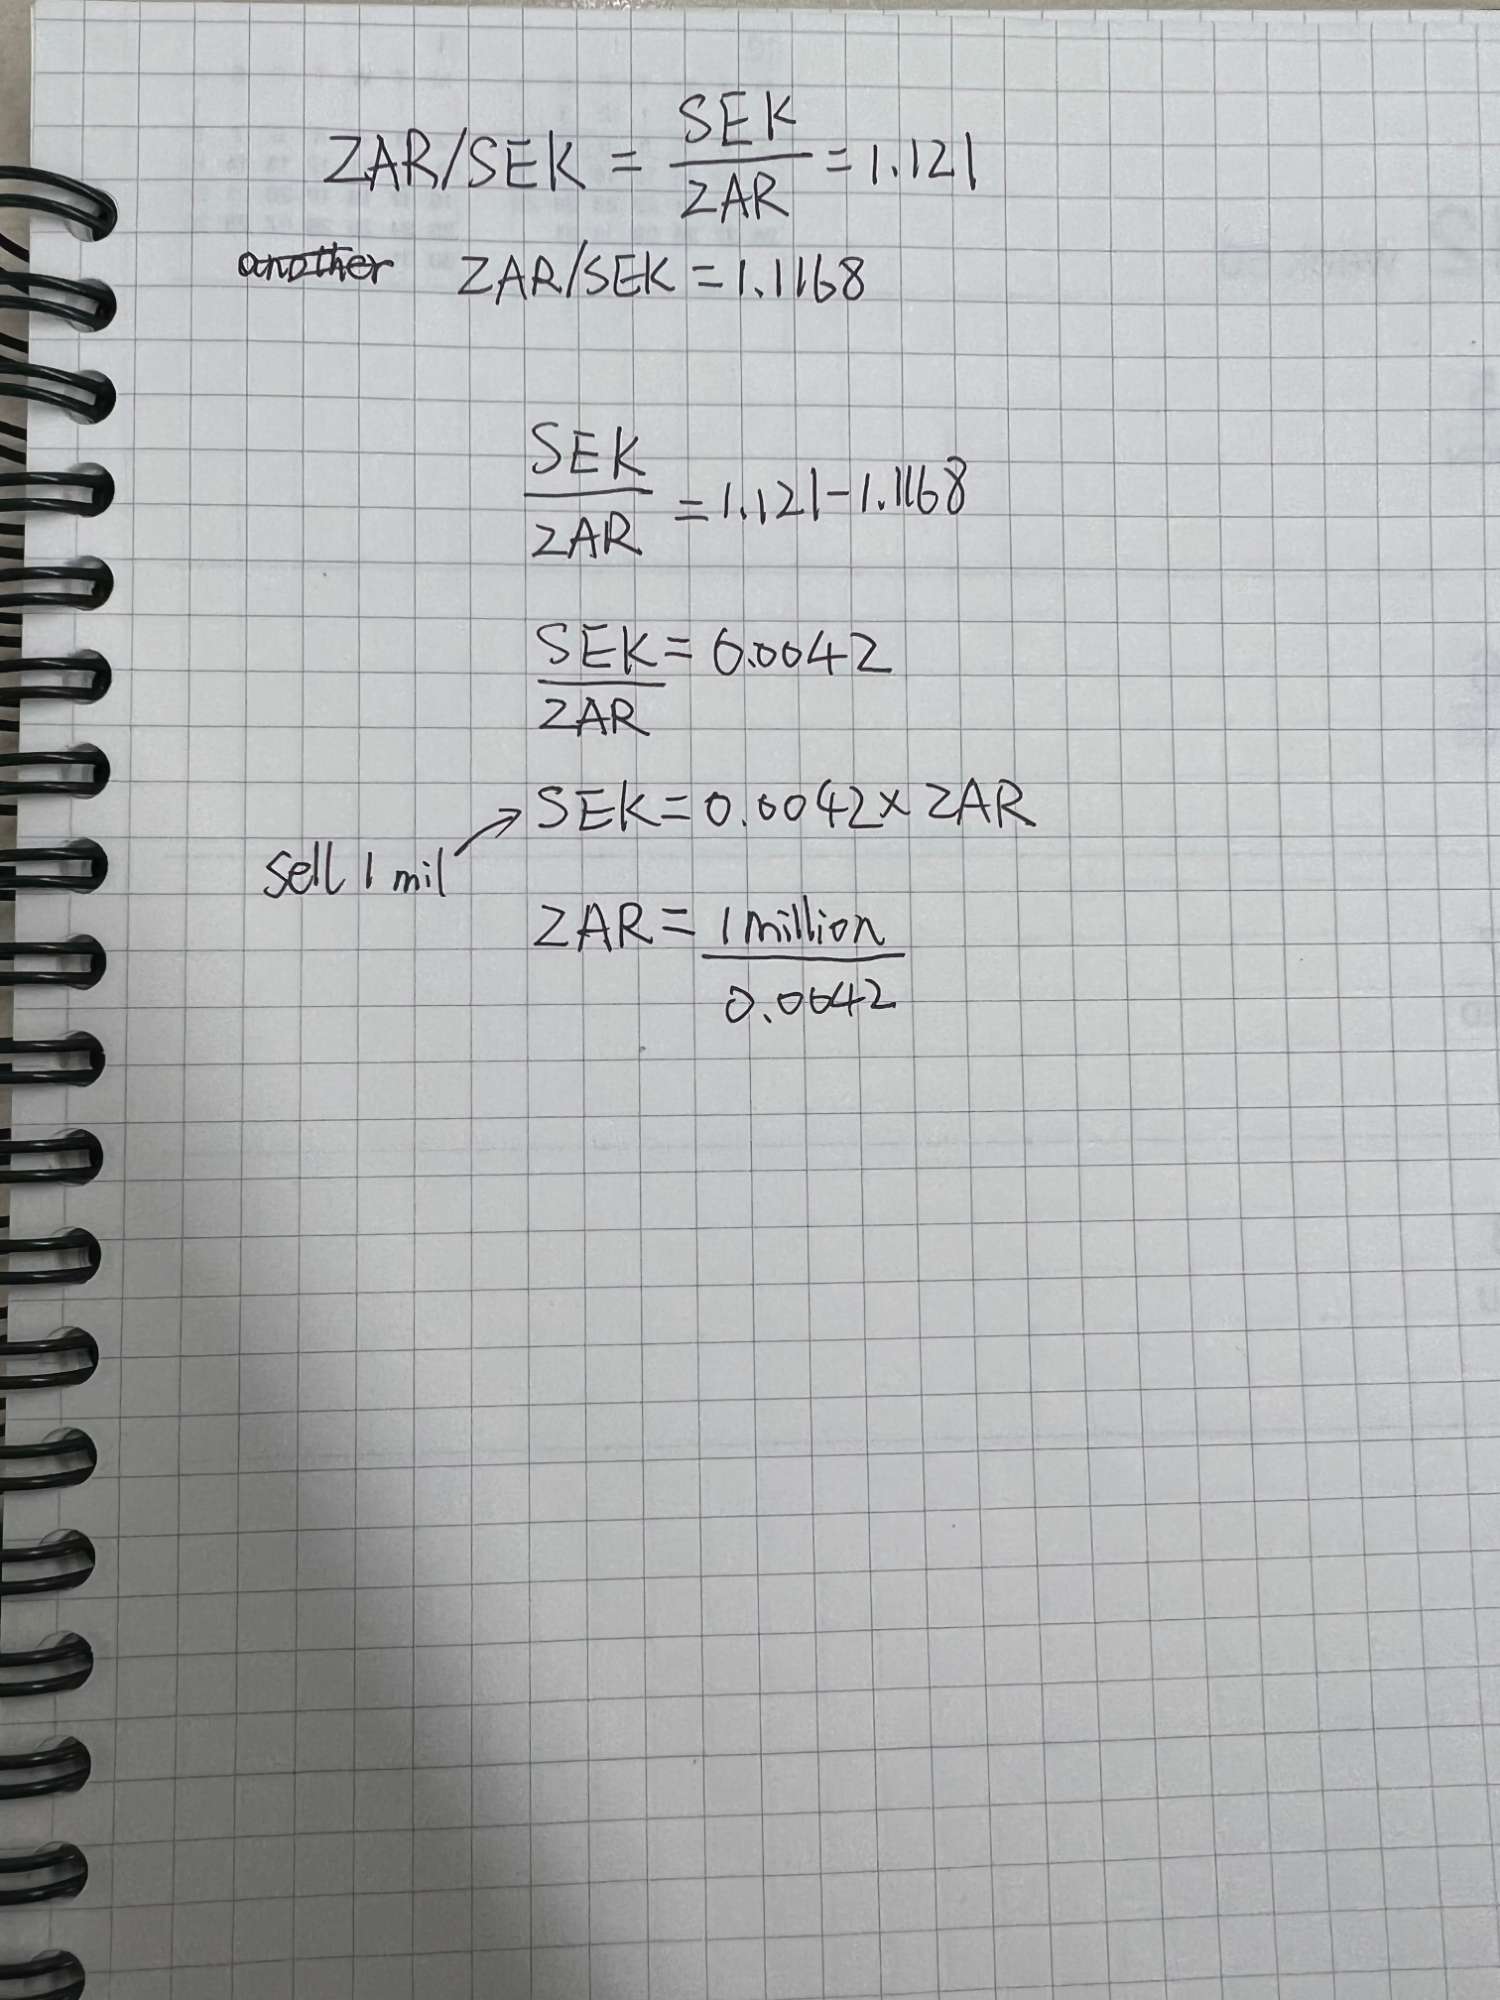 ZAR/SEK = SEK/ZAR = 1.121
another ZAR/SEK = 1.1168
SEK/ZAR = 1.121 - 1.1168
SEK/ZAR = 0.0042
SEK = 0.0042 x ZAR
sell 1 mil
ZAR = 1 million/0.0042